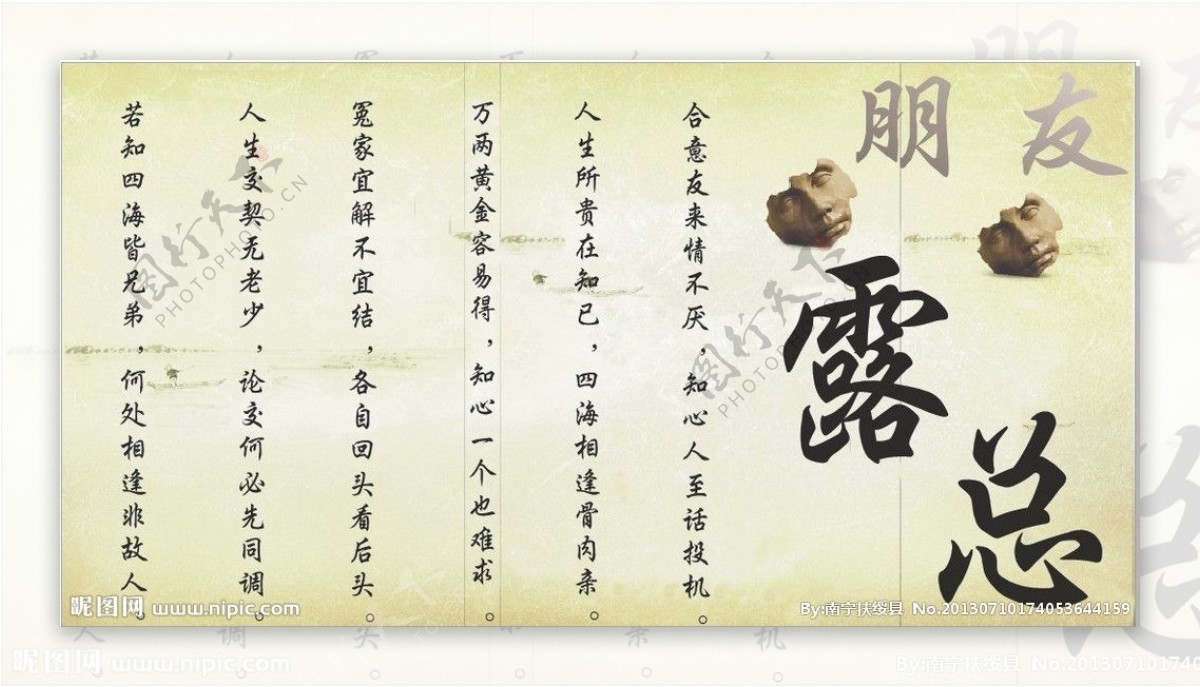 朋友
露总
合意友来情不厌，知心人至话投机。
人生所贵在知己，四海相逢骨肉亲。
万两黄金容易得，知心一个也难求。
冤家宜解不宜结，各自回头看后头。
人生交契无老少，论交何必先同调。
若知四海皆兄弟，何处相逢非故人。
图行天下
PHOTOPHOTO.CN
图行天下
PHOTOPHOTO.CN
昵图网 www.nipic.com
By:南宁扶绥县 No.20130710174053644159
昵图网 www.nipic.com
By:南宁扶绥县 No.201307101740